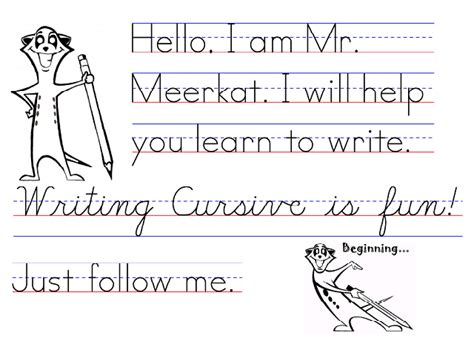 Hello. I am Mr.
Meerkat. I will help
you learn to write.
Writing Cursive is fun!
Just follow me.
Beginning...